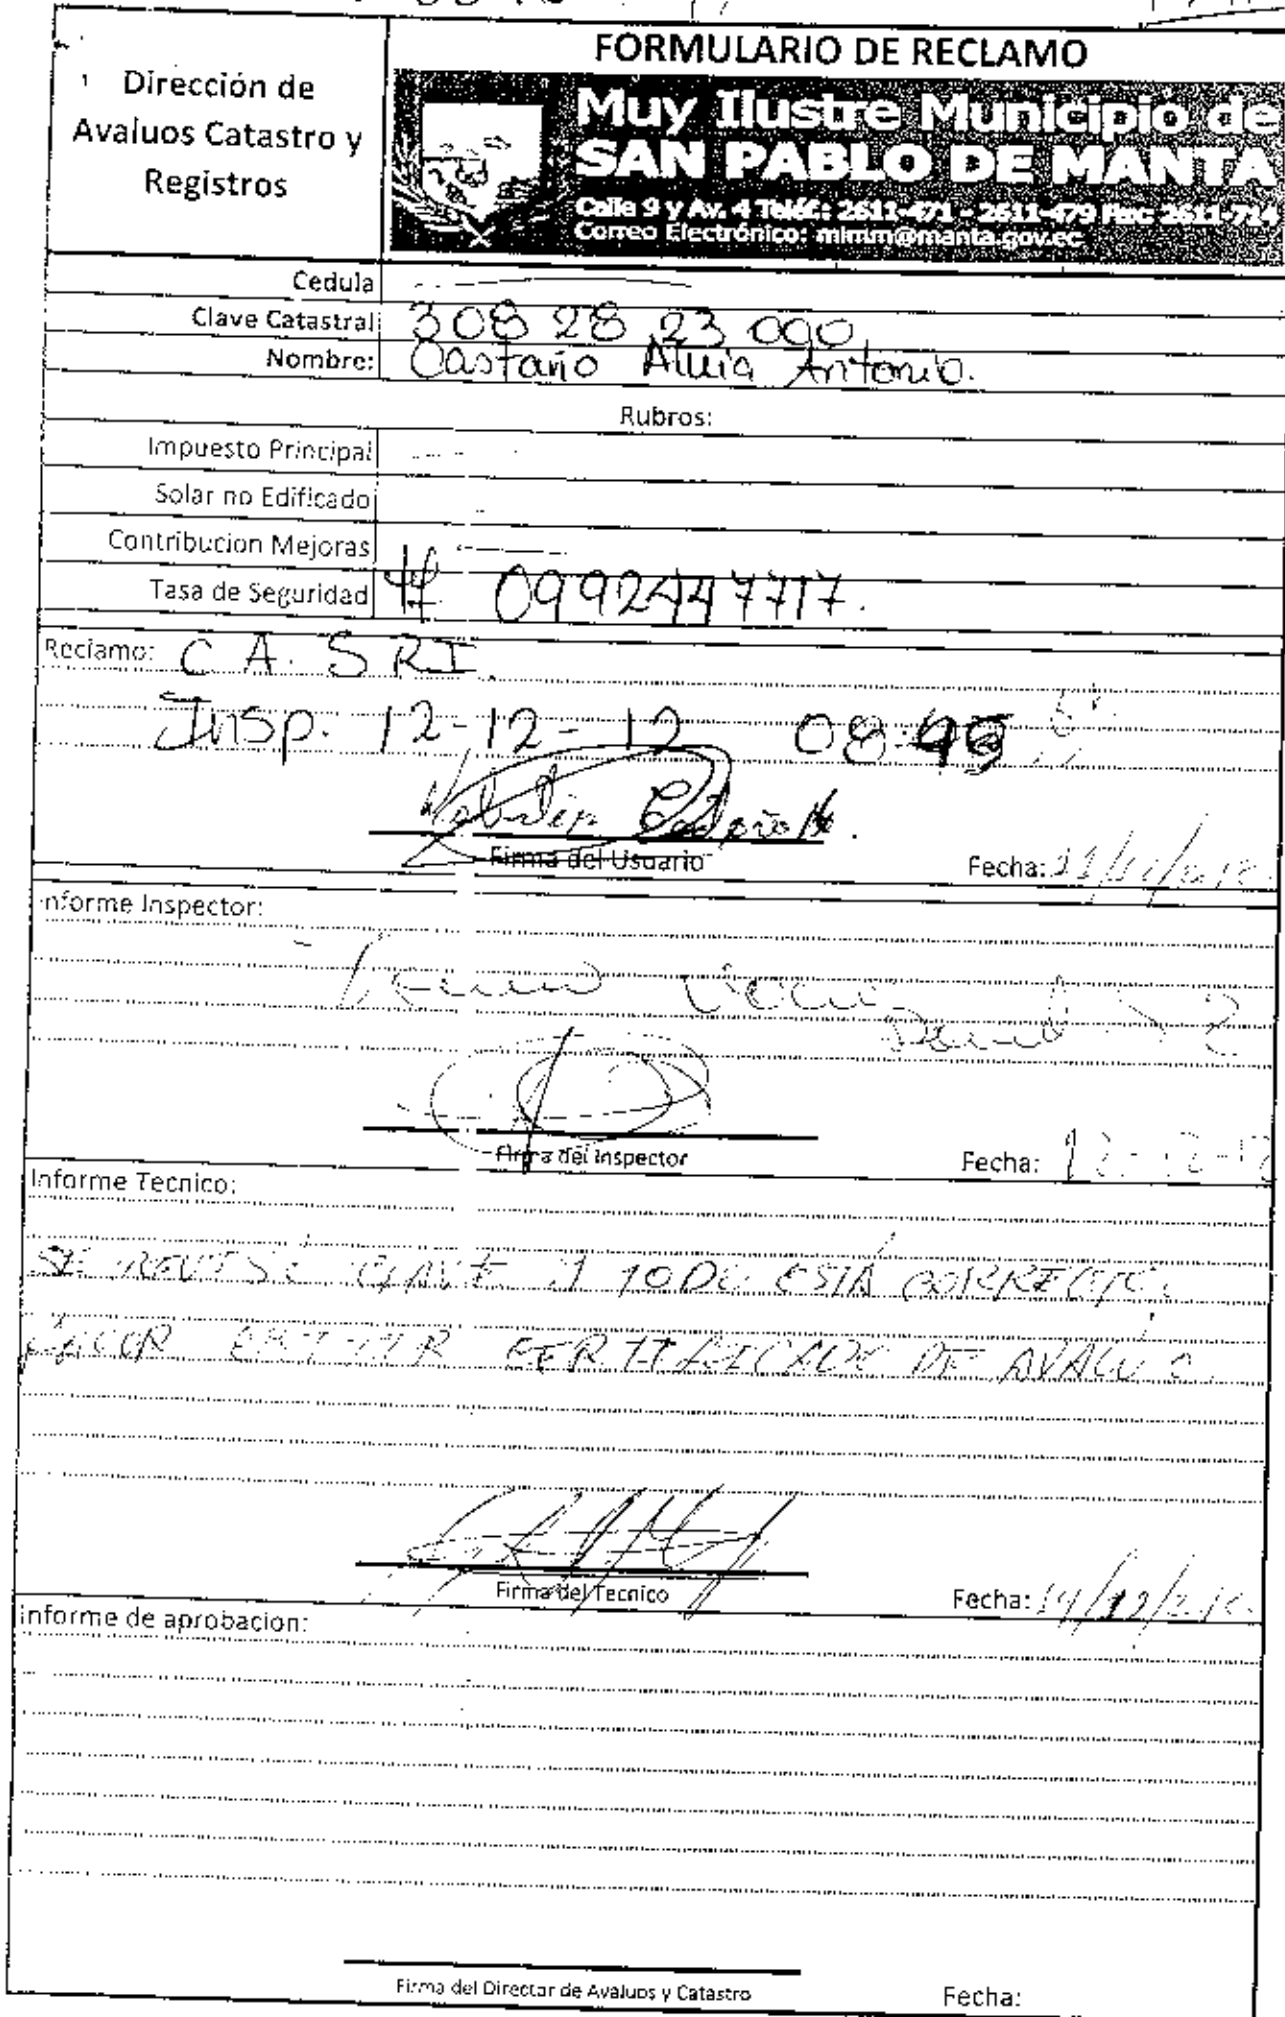 FORMULARIO DE RECLAMO
Dirección de
Avaluos Catastro y
Registros
Muy Ilustre Municipio de
SAN PABLO DE MANTA
Calle 9 y Av. 4 Teléf.: 2611-471 - 2611-479 Fax: 2611-714
Correo Electrónico: mimm@manta.gov.ec
Cedula
Clave Catastral 308 28 23 000
Nombre: Castaño Antonio.
Rubros:
Impuesto Principal
Solar no Edificado
Contribucion Mejoras
Tasa de Seguridad # 0992447717.
Reclamo: C A. S R I
Insp. 12-12-12 08:45
Firma del Usuario
Fecha:
Informe Inspector:
Firma del Inspector
Fecha: 12-12-12
Informe Tecnico:
SE REVISÓ CLAVE Y TODO ESTÁ CORRECTO,
FAVOR EMITIR CERTIFICADO DE AVALUO.
Firma del Tecnico
Fecha: 14/12/2012
Informe de aprobacion:
Firma del Director de Avaluos y Catastro
Fecha: